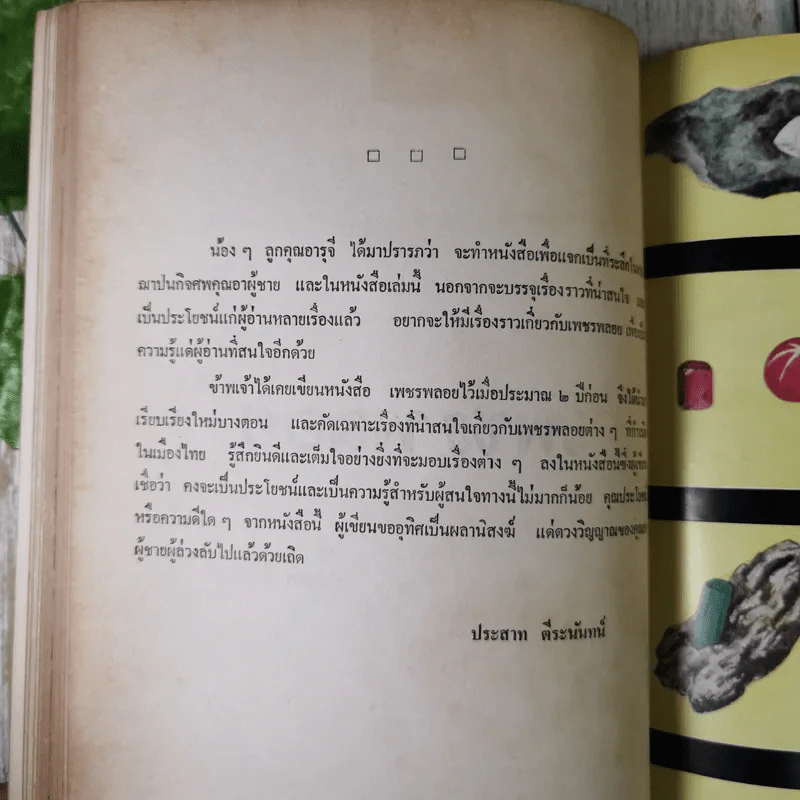 □ □ □
น้อง ๆ ลูกคุณอารุจี ได้มาปรารภว่า จะทำหนังสือเพื่อแจกเป็นที่ระลึกใน
ฌาปนกิจศพคุณอาผู้ชาย และในหนังสือเล่มนี้ นอกจากจะบรรจุเรื่องราวที่น่าสนใจ
เป็นประโยชน์แก่ผู้อ่านหลายเรื่องแล้ว อยากจะให้มีเรื่องราวเกี่ยวกับเพชรพลอย
ความรู้แด่ผู้อ่านที่สนใจอีกด้วย
ข้าพเจ้าได้เคยเขียนหนังสือ เพชรพลอยไว้เมื่อประมาณ ๒ ปีก่อน จึงได้
เรียบเรียงใหม่บางตอน และคัดเฉพาะเรื่องที่น่าสนใจเกี่ยวกับเพชรพลอยต่าง ๆ
ในเมืองไทย รู้สึกยินดีและเต็มใจอย่างยิ่งที่จะมอบเรื่องต่าง ๆ ลงในหนังสือนี้ซึ่ง
เชื่อว่า คงจะเป็นประโยชน์และเป็นความรู้สำหรับผู้สนใจทางนี้ไม่มากก็น้อย
หรือความดีใด ๆ จากหนังสือนี้ ผู้เขียนขออุทิศเป็นผลานิสงฆ์ แด่ดวงวิญญาณของ
ผู้ชายผู้ล่วงลับไปแล้วด้วยเถิด
ประสาท ตีระนันทน์